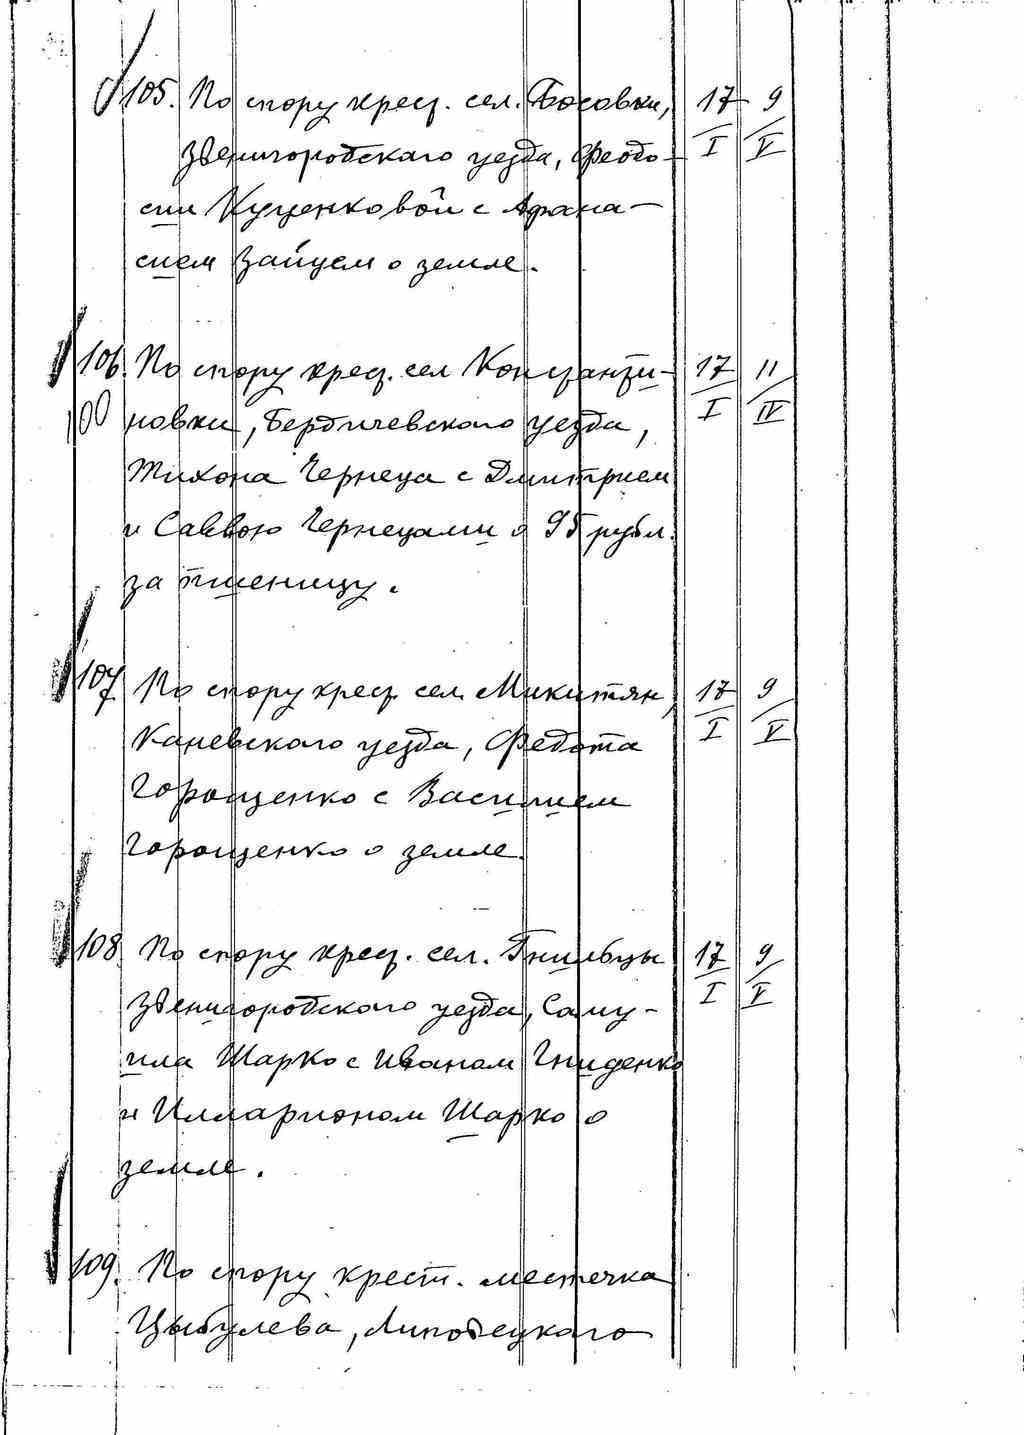 105. По спору крест. сел. Босовки, 17 9
Звенигородскаго уезда, Феодо- I V
сии Куценковой с Афана-
сием Зайцем о земле.
106. По спору крест. сел Константи- 17 11
100 новки, Бердичевского уезда, I IV
Тихона Чернеца с Дмитрием
и Саввою Чернецами о 95 рубл.
за пшеницу.
107 По спору крест. сел. Микитян, 17 9
Каневского уезда, Федота I V
Горощенко с Василием
Горощенко о земле.
108. По спору крест. сел. Гнильцы 17 9
Звенигородского уезда, Саму- I V
ила Шарко с Иваном Гниденко
и Илларионом Шарко о
земле.
109. По спору крест. местечка
Цыбулева, Липовецкого